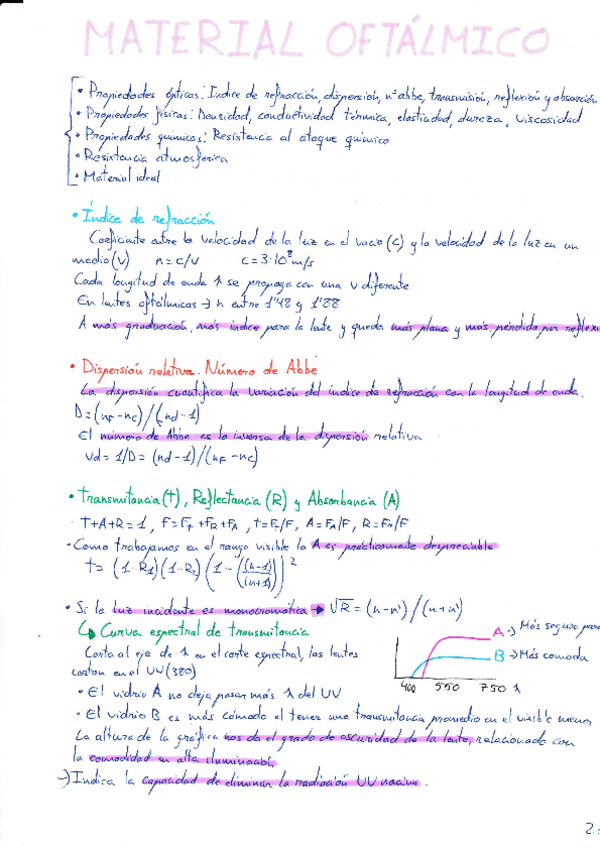 MATERIAL OFTÁLMICO
• Propiedades ópticas: Indice de refracción, dispersión, nº abbe, transmisión, reflexión y absorción
• Propiedades físicas: Densidad, conductividad térmica, elasticidad, dureza, viscosidad
• Propiedades químicas: Resistencia al ataque químico
• Resistencia atmosférica
• Material ideal
• Índice de refracción
Coeficiente entre la velocidad de la luz en el vacio (c) y la velocidad de la luz en un
medio (v) n = c/v c = 3·10⁸ m/s
Cada longitud de onda λ se propaga con una v diferente
En lentes oftálmicas → n entre 1'48 y 1'88
A más graduación, más indice para la lente y queda más plana y más pérdida por reflexi
• Dispersión relativa. Número de Abbe
La dispersión cuantifica la variación del índice de refracción con la longitud de onda.
D = (nF - nC)/(nd - 1)
El número de Abbe es la inversa de la dispersión relativa
Vd = 1/D = (nd - 1)/(nF - nC)
• Transmitancia (T), Reflectancia (R) y Absorbancia (A)
T+A+R = 1, F = FT + FR + FA, t = Ft/F, A = FA/F, R = FR/F
• Como trabajamos en el rango visible la A es prácticamente despreciable
t = (1-R1)(1-R2)(1 - ((n-1)/(n+1)))²
• Si la luz incidente es monocromática → √R = (n-n')/(n+n')
↳ Curva espectral de transmitancia
Corta al eje de λ en el corte espectral, las lentes
cortan en el UV (380)
A → Más seguro para
B → Más comoda
400 550 750 λ
• El vidrio A no deja pasar más λ del UV
• El vidrio B es más cómodo el tener una transmitancia promedio en el visible menor
La altura de la gráfica nos da el grado de oscuridad de la lente, relacionado con
la comodidad en alta iluminación
→ Indica la capacidad de eliminar la radiación UV nociva.